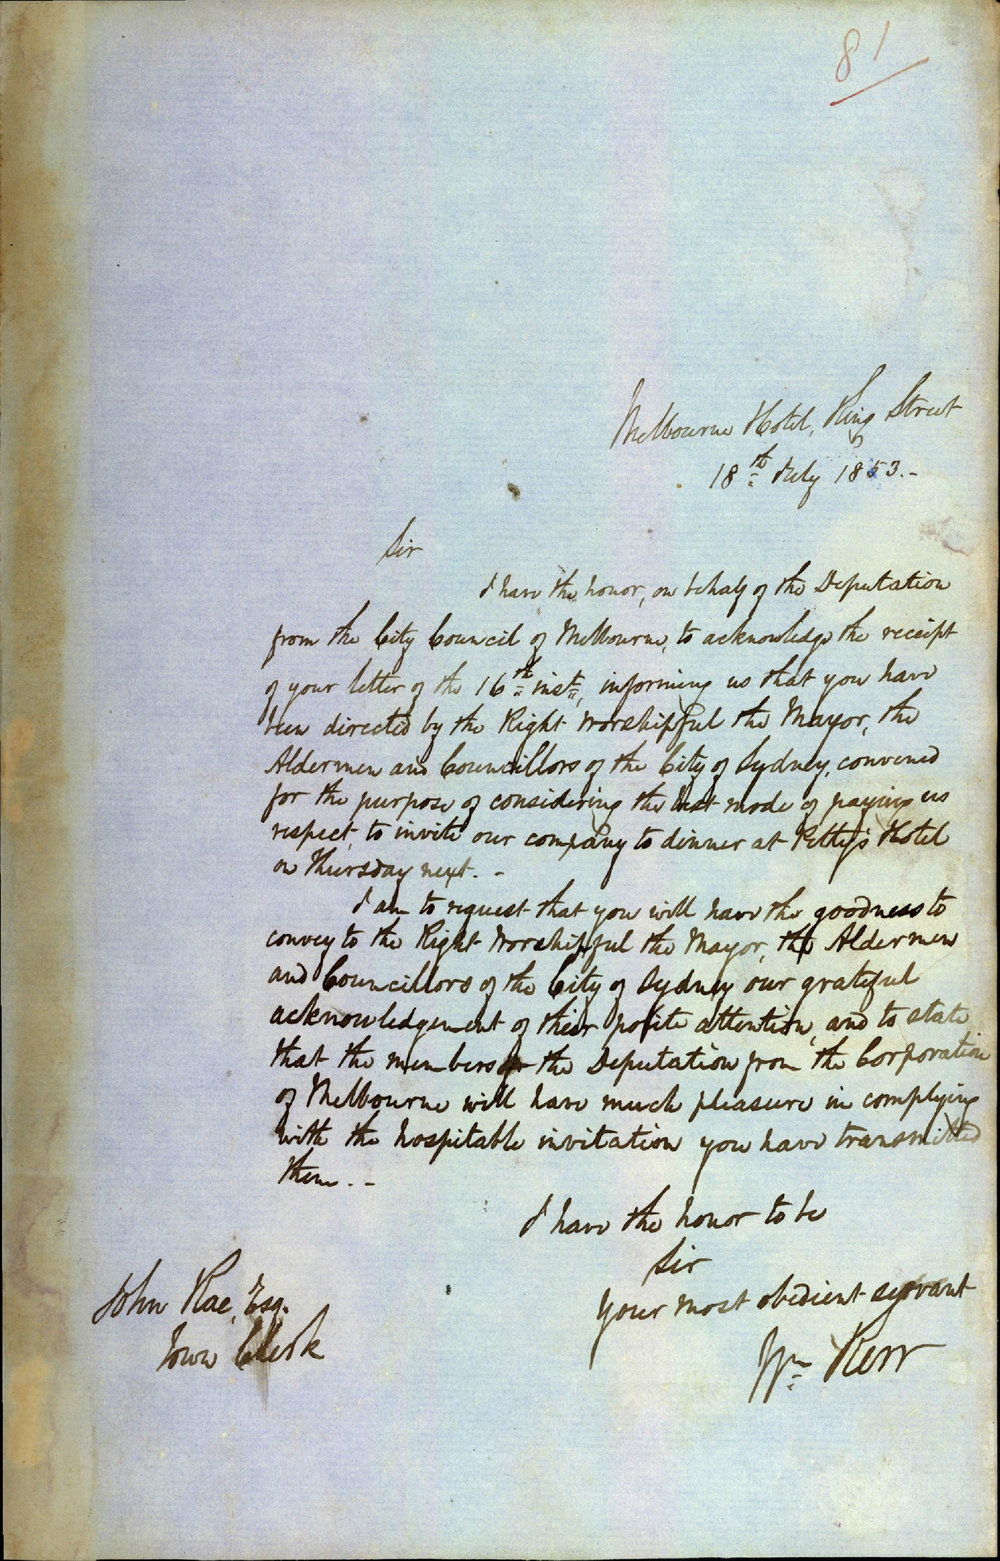 81
Melbourne Hotel, King Street
18th July 1853.-
Sir
I have the honor, on behalf of the Deputation
from the City Council of Melbourne, to acknowledge the receipt
of your letter of the 16th inst, informing us that you have
been directed by the Right Worshipful the Mayor, the
Aldermen and Councillors of the City of Sydney, convened
for the purpose of considering the best mode of paying us
respect, to invite our company to dinner at Petty's Hotel
on Thursday next. -
I am to request that you will have the goodness to
convey to the Right Worshipful the Mayor, the Aldermen
and Councillors of the City of Sydney our grateful
acknowledgement of their polite attention, and to state
that the members of the Deputation from the Corporation
of Melbourne will have much pleasure in complying
with the hospitable invitation you have transmitted
them. -
I have the honor to be
Sir
Your most obedient servant
Wm Kerr
John Rae, Esq.
Town Clerk